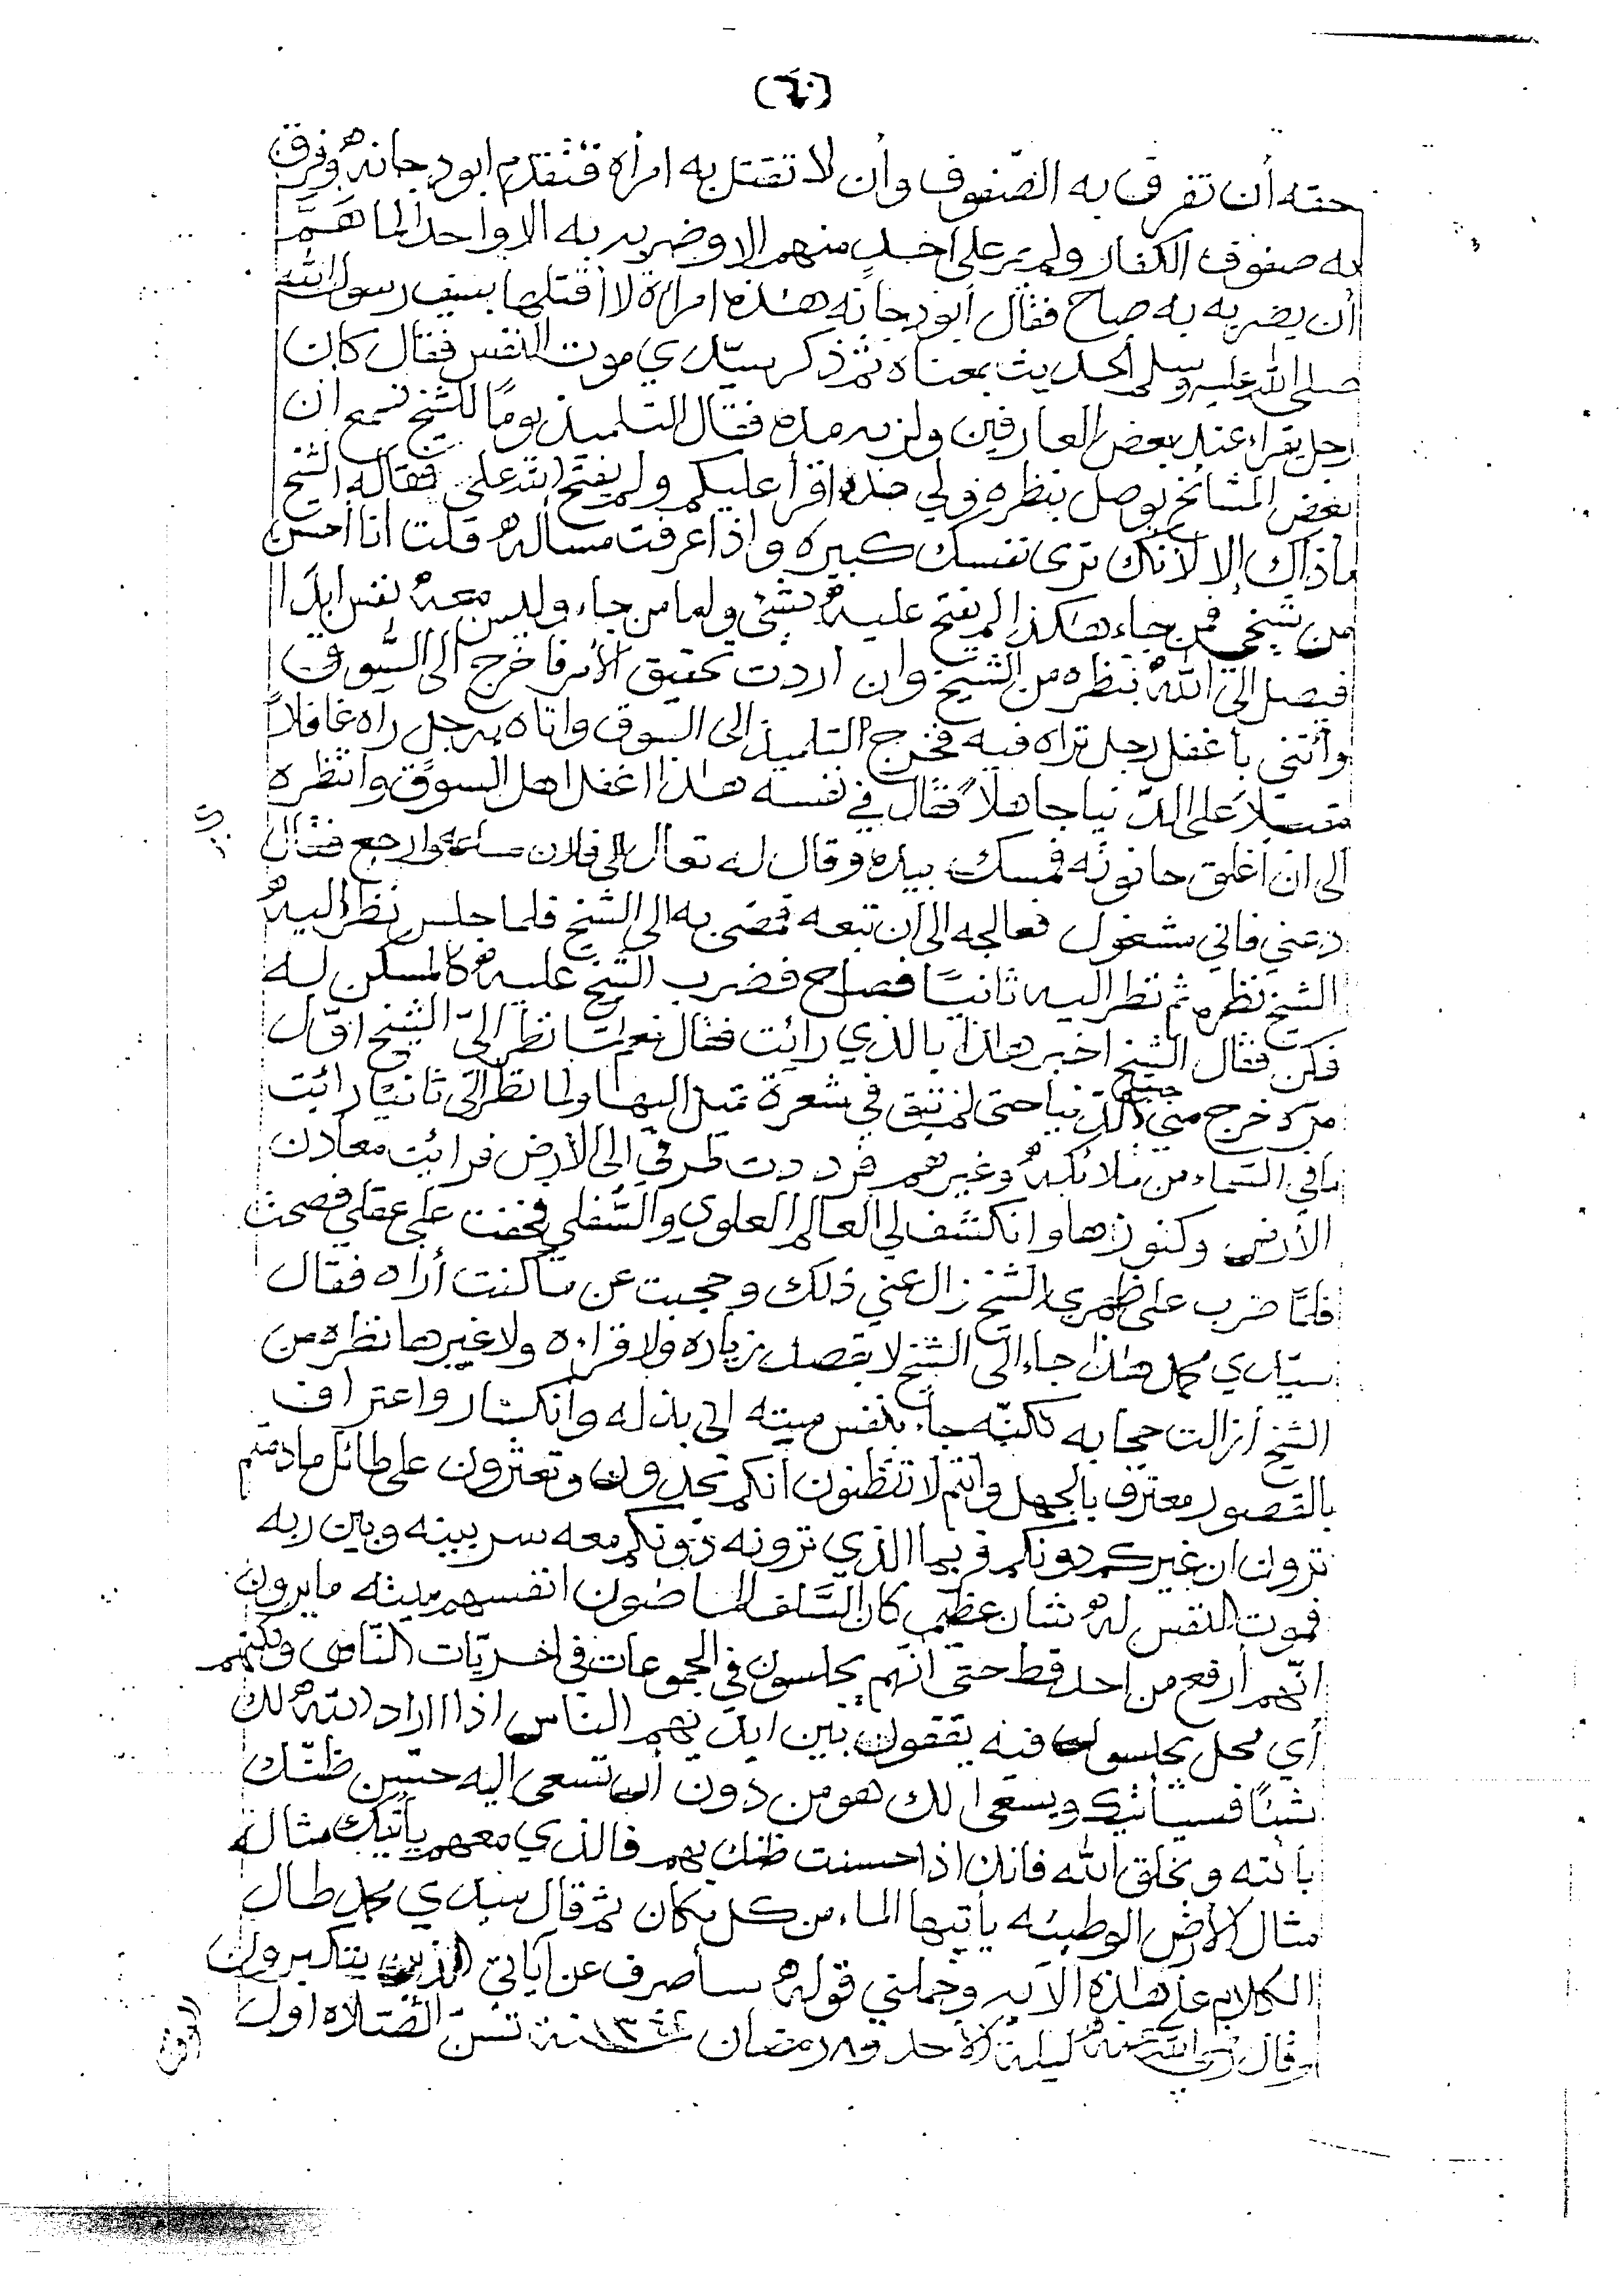 (٦٠)
حقه أن تفرق به الصّفوف وأن لا تقتل به امرأه فتقدم ابو دجانه وفرق
به صفوف الكفار ولم يمر على أحدٍ منهم الا وضربه به الا واحد لما همَّ
أن يضربه به صاح فقال أبو دجانه هذه امراة لا أقتلها بسيف رسول الله
صلى الله عليه وسلم الحديث بمعناه ثم ذكر سيّدي موت النفس فقال كان
رجل يقراء عند بعض العارفين ولزمه مده فقال التلميذ يومًا للشيخ نسمع ان
بعض المشائخ يوصل بنظره ولي مده اقرأ عليكم ولم يفتح الله علي فقال له الشيخ
ماذاك إلا لأنك ترى نفسك كبيره واذا عرفت مسأله قلت أنا أحسن
من شيخي فمن جاء هكذا لم يفتح عليه بشئ واما من جاء وليس معه نفس ابدا
فيصل الى الله بنظره من الشيخ وان اردت تحقيق الأمر فاخرج الى السُّوق
وأتني بأغفل رجل تراه فيه فخرج التلميذ الى السوق واتاه برجلٍ راه غافلاً
مقبلاً على الدّنيا جاهلاً فقال في نفسه هذا اغفل اهل السوق وانتظره
الى ان أغلق حانوته فمسك بيده وقال له تعال الى فلان ساعه وارجع فقال
دعني فاني مشغول فعالجه الى أن تبعه فمضى به الى الشيخ فلما جلس نظر اليه
الشيخ نظره ثم نظر اليه ثانيًا فصاح فضرب الشيخ عليه كالمسكن له
فسكن فقال الشيخ اخبر هذا بالذي رائت فقال نعم لما نظر الىّ الشيخ اوّل
مرة خرج مني حب الدّنيا حتى لم تبق في شعرة تميل اليها ولما نظر الىّ ثانيًا رائت
مافي السّماء من ملائكه وغيرهم فرددت طرفي الى الأرض فرائت معادن
الأرض وكنوزها وانكشف لي العالم العلوي والسُّفلي فخفت على عقلي فصحت
فلمّا ضرب على ظهري الشيخ زال عني ذلك وحجبت عن ما كنت أراه فقال
سيّدي محمد هذا جاء الى الشيخ لا بقصد زياره ولا قراءه ولا غيرها نظره من
الشيخ أزالت حجابه لكنّه جاء بنفس ميته اتى بذله وانكسار واعتراف
بالقصور معترف بالجهل وانتم لا تظنون انكم تجدون وتعثرون على طائل مادمتم
ترون ان غيركم دونكم فربما الذي ترونه دونكم معه سر بينه وبين ربه
فموت النفس له شان عظيم كان السّلف الماضون انفسهم ميته مايرون
انّهم أرفع من احد قط حتى انّهم يجلسون في المجموعات في اخريّات النّاس ولكنهم
أي محل يجلسون فيه يقفون بين ايديهم الناس اذا اراد الله لك
شيئًا فسيأتيك ويسعى لك هو من دون أن تسعى اليه حسّن ظنّك
بالله وبخلق الله فانك اذا حسنت ظنك بهم فالذي معهم يأتيك مثاله
مثال الأرض الوطيئه يأتيها الماء من كل مكان ثم قال سيدي محمد طال
الكلام على هذه الآيه وحملني قوله سأصرف عن آياتي الذين يتكبرون
وقال رضي الله عنه ليلة الأحد و٨ رمضان سنة تسنّ الصّلاه اول
الوقت